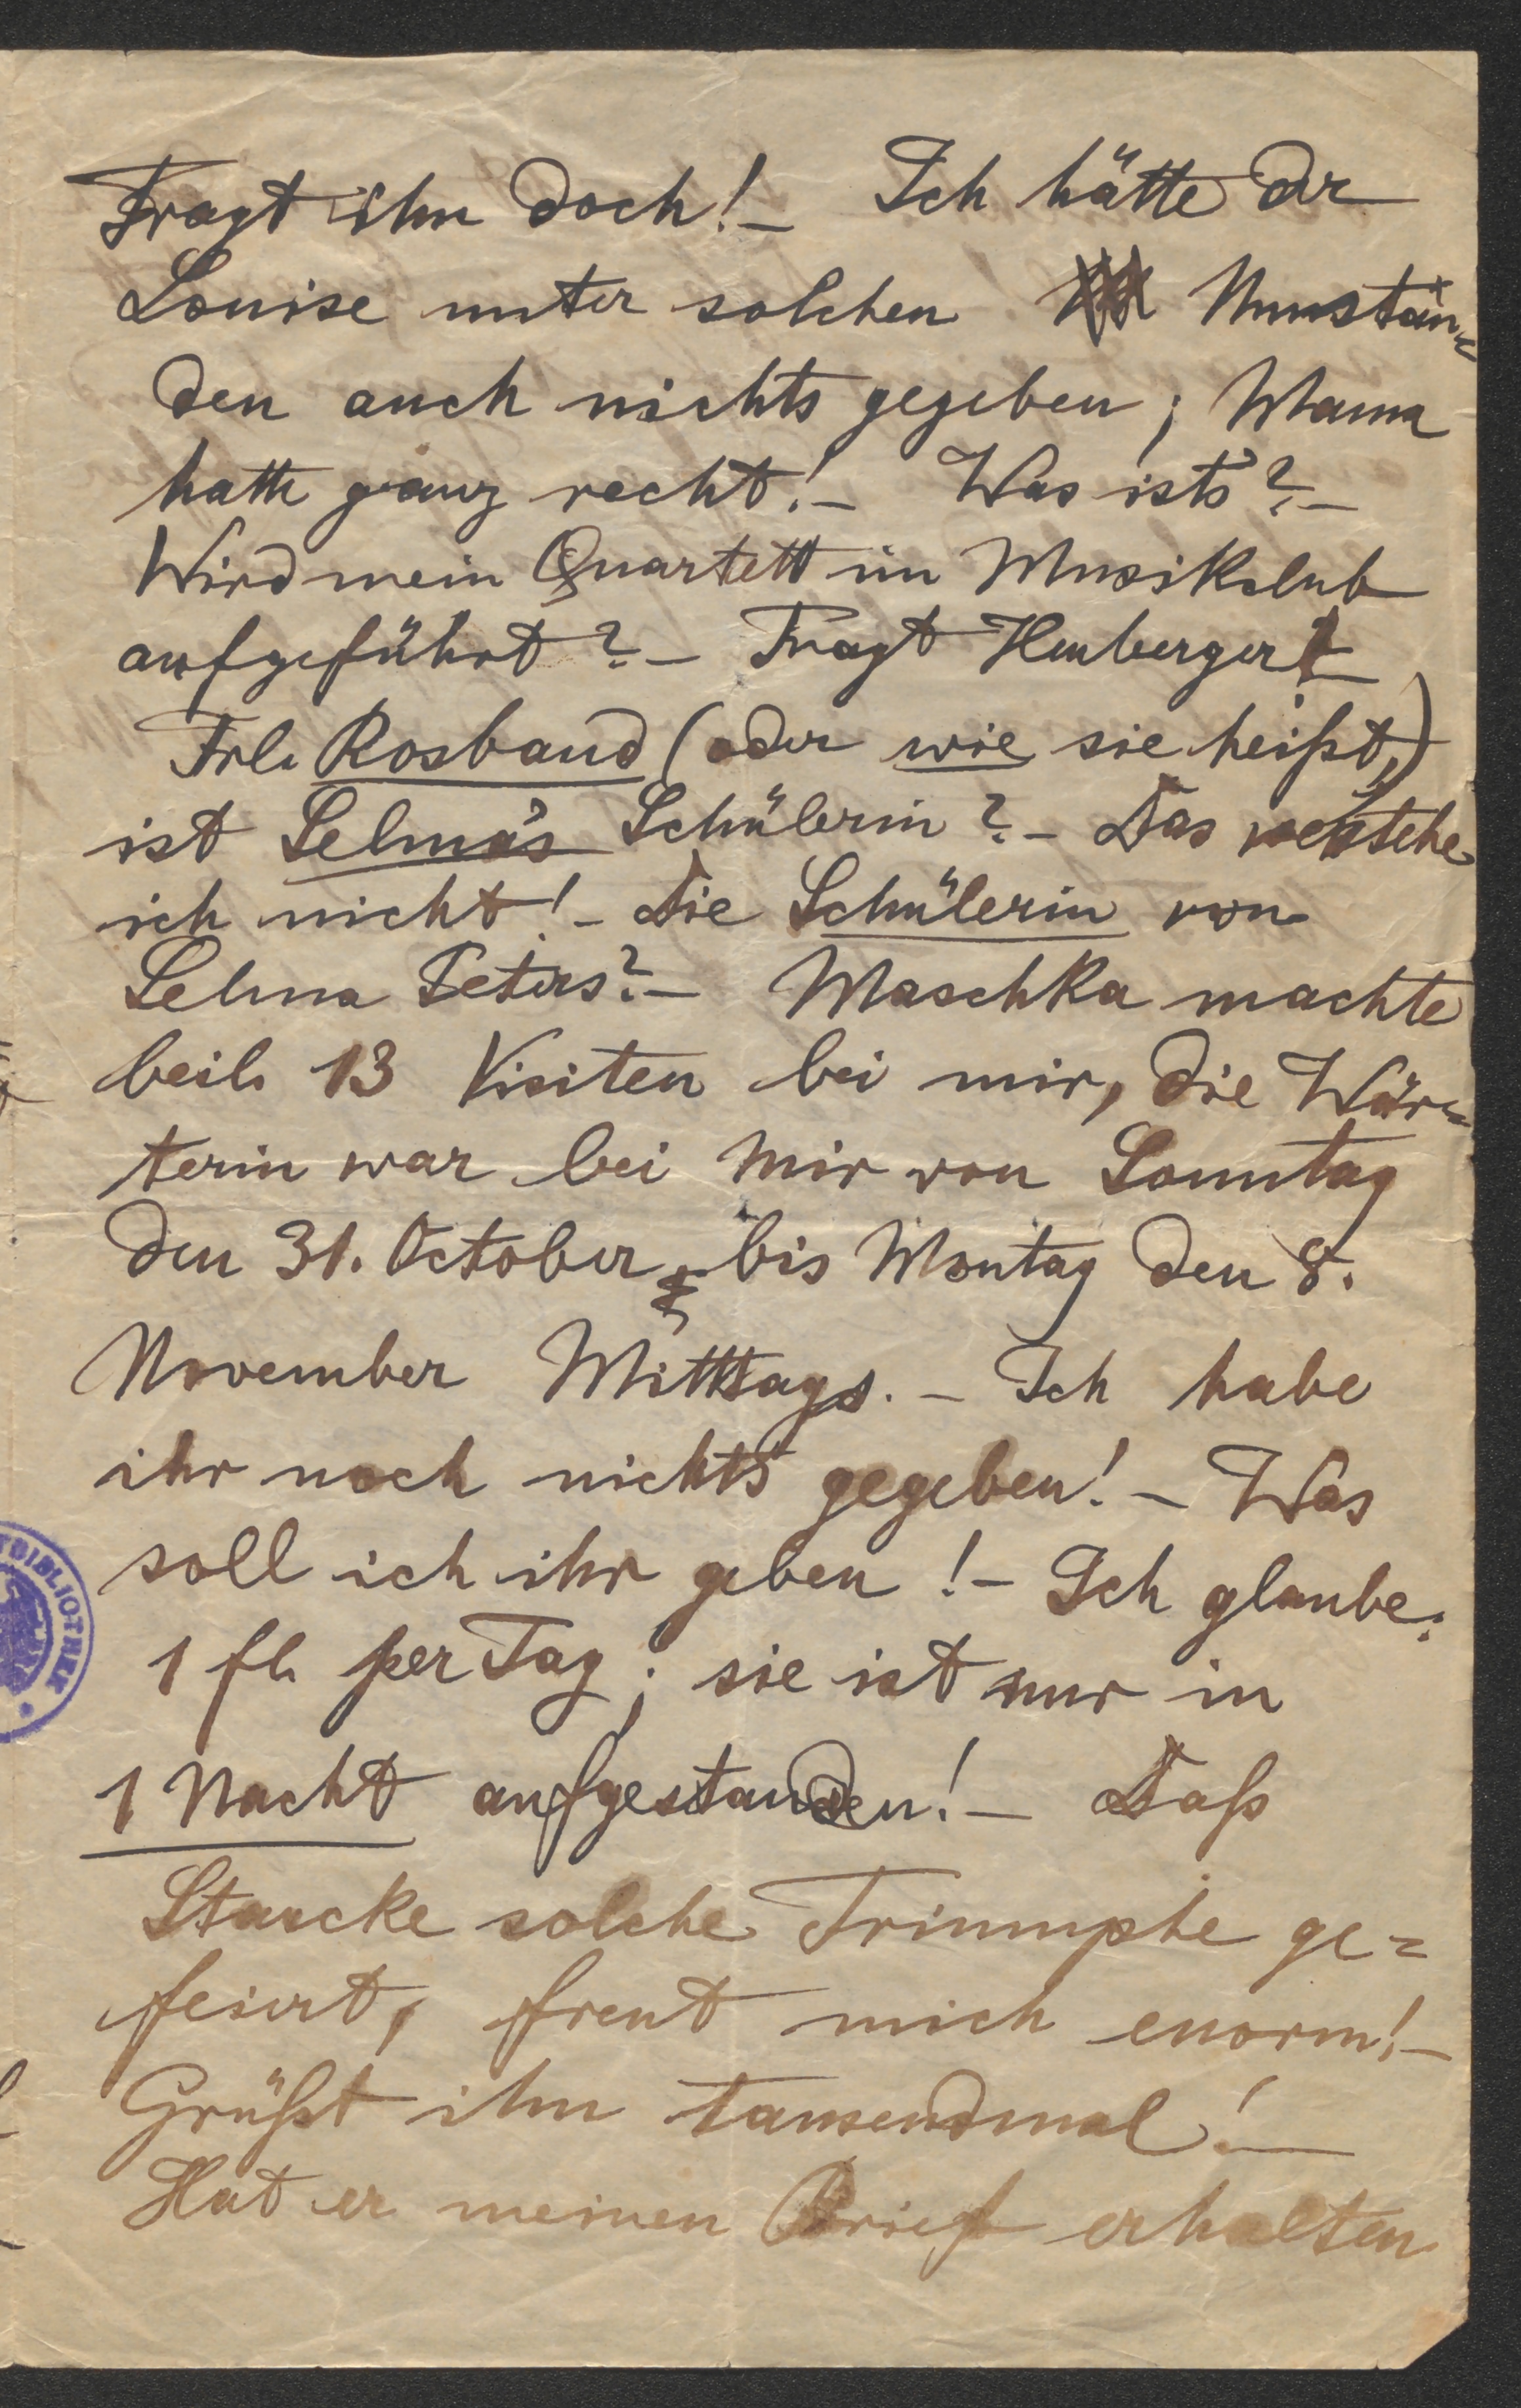 Fragt ihn doch! – Ich hätte der
Louise unter solchen Umstän=
den auch nichts gegeben; Mama
hatte ganz recht! – Was ists? –
Wird mein Quartett im Musikclub
aufgeführt? – Fragt Heuberger! –
Frl. Rosband (oder wie sie heißt,)
ist Selma's Schülerin? – Das verstehe
ich nicht! – Die Schülerin von
Selma Peters? – Maschka machte
beil. 13 Visiten bei mir, die Wär=
terin war bei mir von Sonntag
den 31. October bis Montag den 8.
November Mittags. – Ich habe
ihr noch nichts gegeben! – Was
soll ich ihr geben! – Ich glaube:
1 fl. per Tag; sie ist nur in
1 Nacht aufgestanden! – Daß
Starcke solche Triumphe ge=
feiert, freut mich enorm! –
Grüßt ihn tausendmal! –
Hat er meinen Brief erhalten